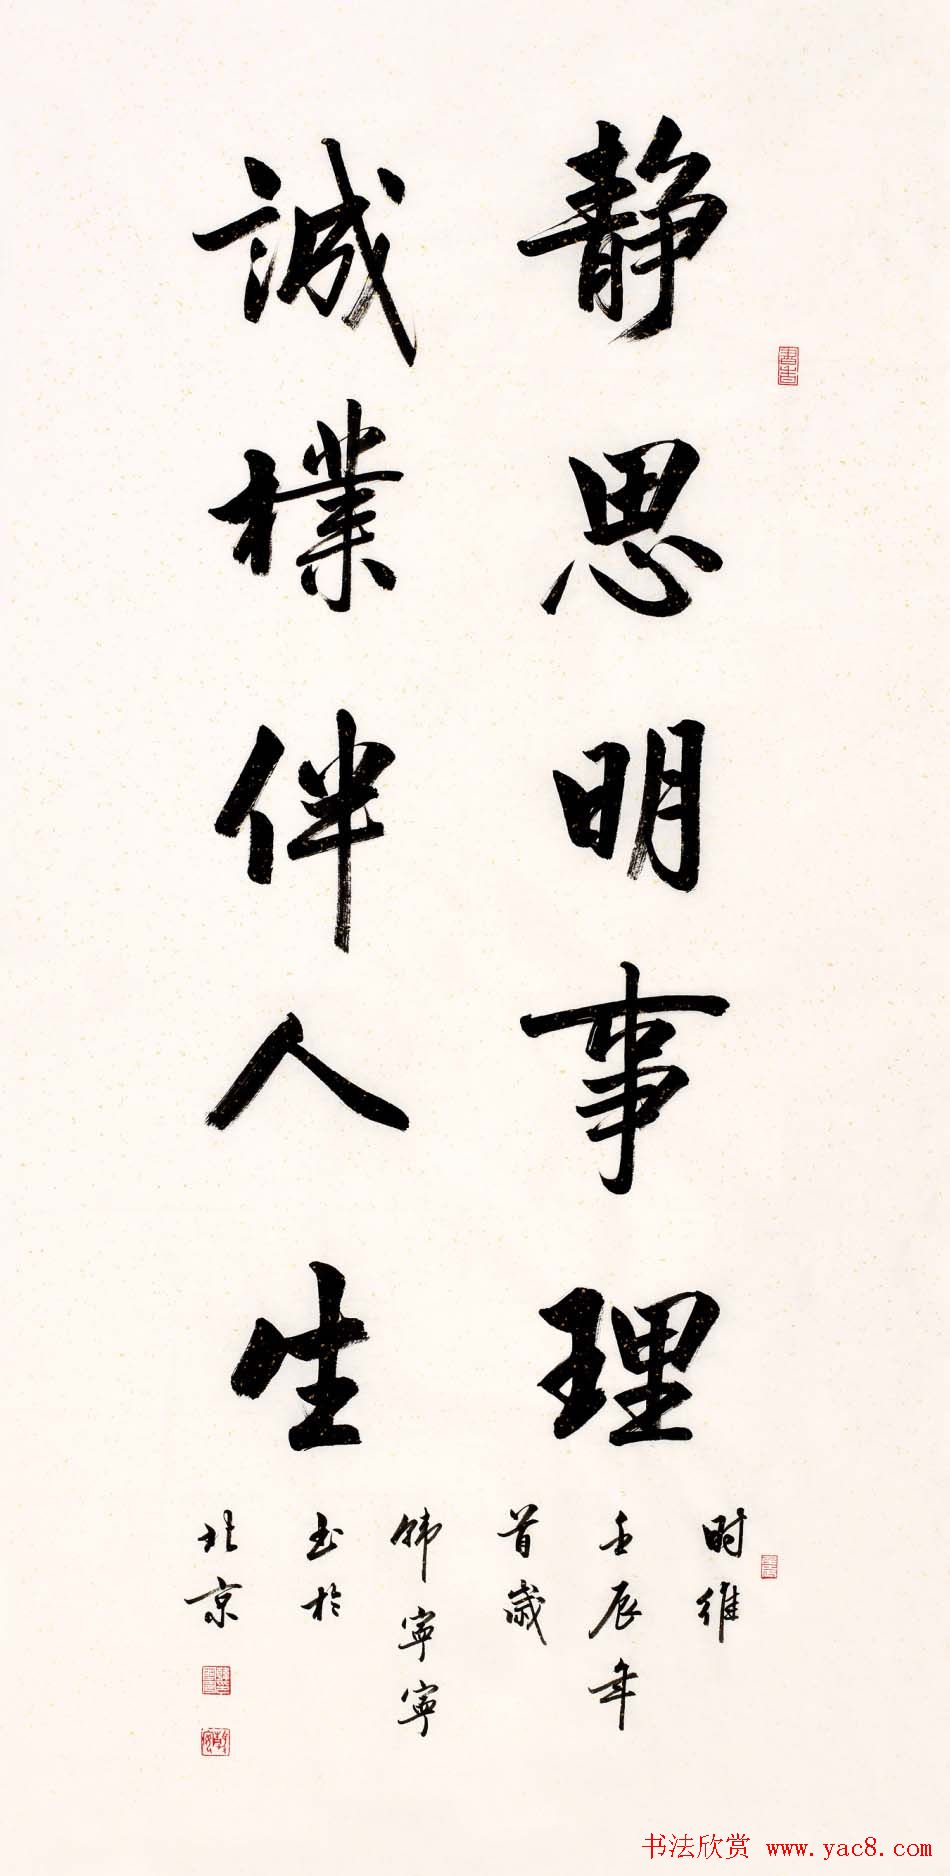 静思明事理
誠樸伴人生
时维
壬辰年
首歲
韩寧寧
书於
北京
书法欣赏 www.yac8.com